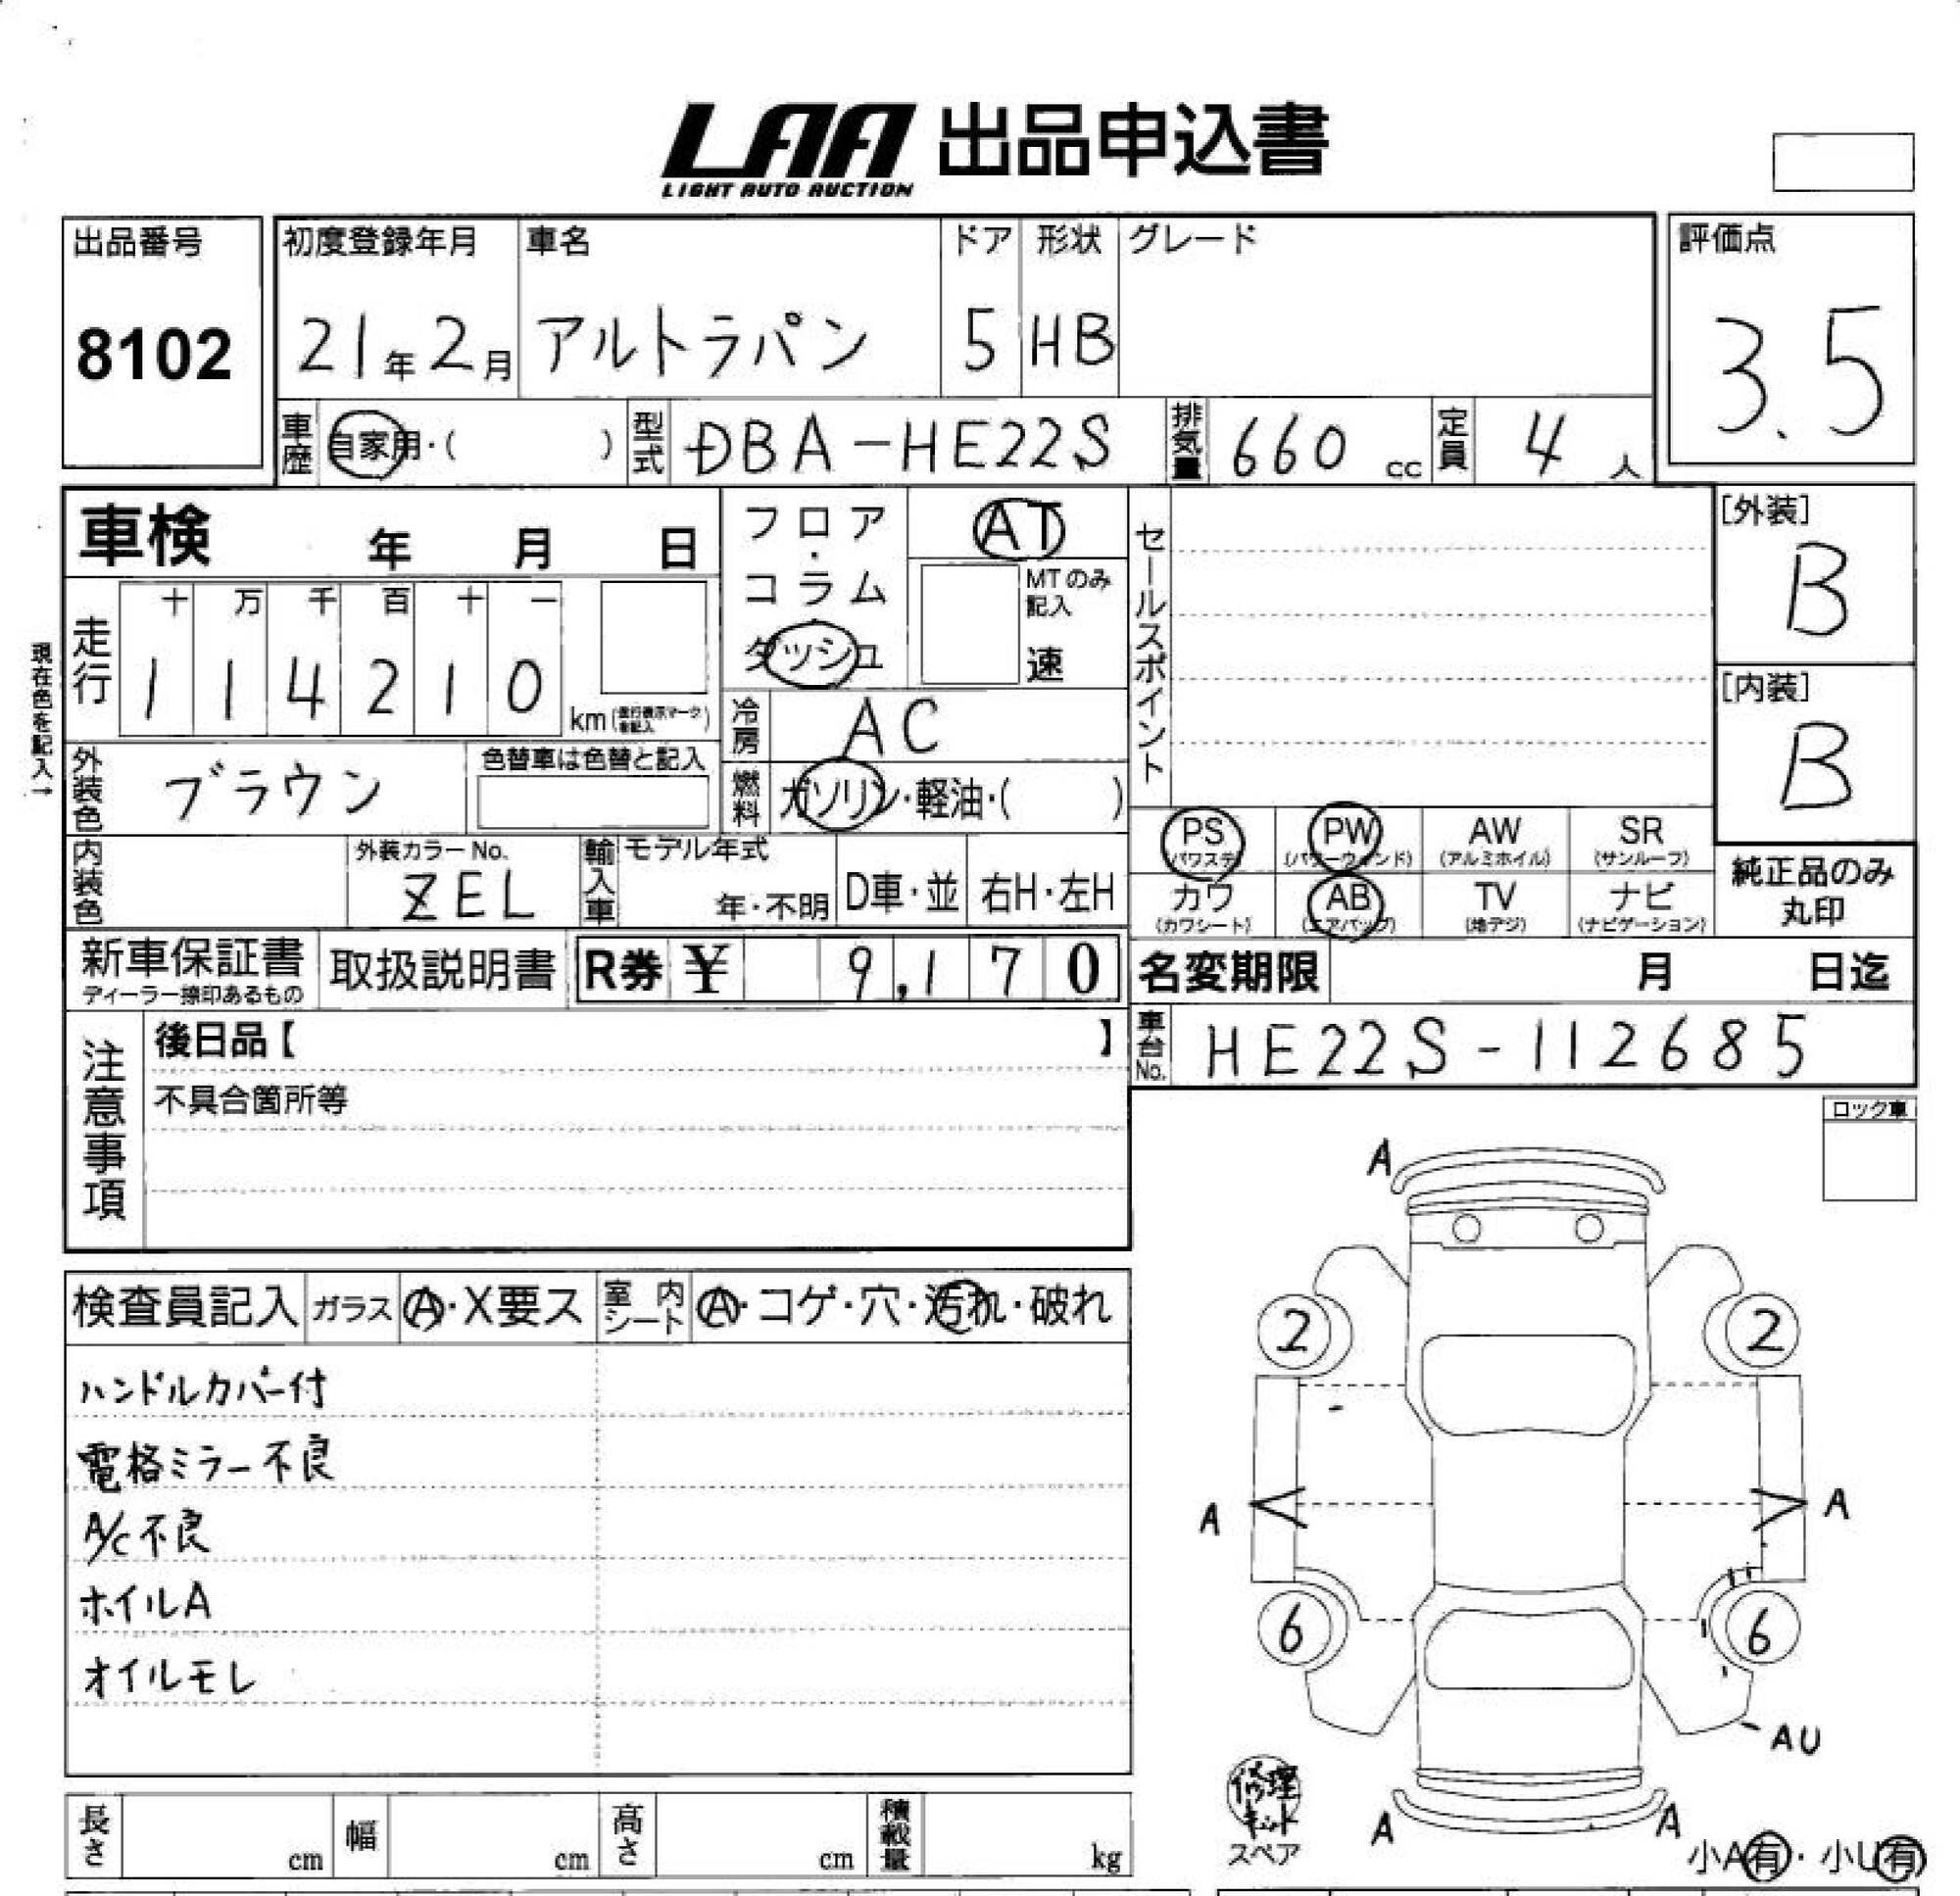 LAA 出品申込書
LIGHT AUTO AUCTION
出品番号
8102
初度登録年月 車名 ドア 形状 グレード
21年2月 アルトラパン 5 HB
評価点
3.5
車歴 自家用・( ) 型式 DBA-HE22S 排気量 660 cc 定員 4 人
車検 年 月 日
フロア・コラム・ダッシュ
AT
MTのみ記入
速
セールスポイント
[外装]
B
[内装]
B
現在色を記入→
走行
十 万 千 百 十 一
1 1 4 2 1 0 km
冷房 AC
外装色 ブラウン
色替車は色替と記入
燃料 ガソリン・軽油・( )
PS (パワステ) PW (パワーウィンド) AW (アルミホイル) SR (サンルーフ)
カワ (カワシート) AB (エアバッグ) TV (地デジ) ナビ (ナビゲーション)
純正品のみ
丸印
内装色
外装カラーNo.
ZEL
輸入車 モデル年式
年・不明 D車・並 右H・左H
新車保証書
ディーラー捺印あるもの
取扱説明書
R券 ¥ 9,170
名変期限 月 日迄
車台No. HE22S-112685
注意事項
後日品【 】
不具合箇所等
ロック車
検査員記入 ガラス A・X要ス 室内シート A・コゲ・穴・汚れ・破れ
ハンドルカバー付
電格ミラー不良
A/C不良
ホイルA
オイルモレ
A
2 2
A A
6 6
AU
A A
修理キット
スペア
小A有・小U有
長さ cm 幅 cm 高さ cm 積載量 kg